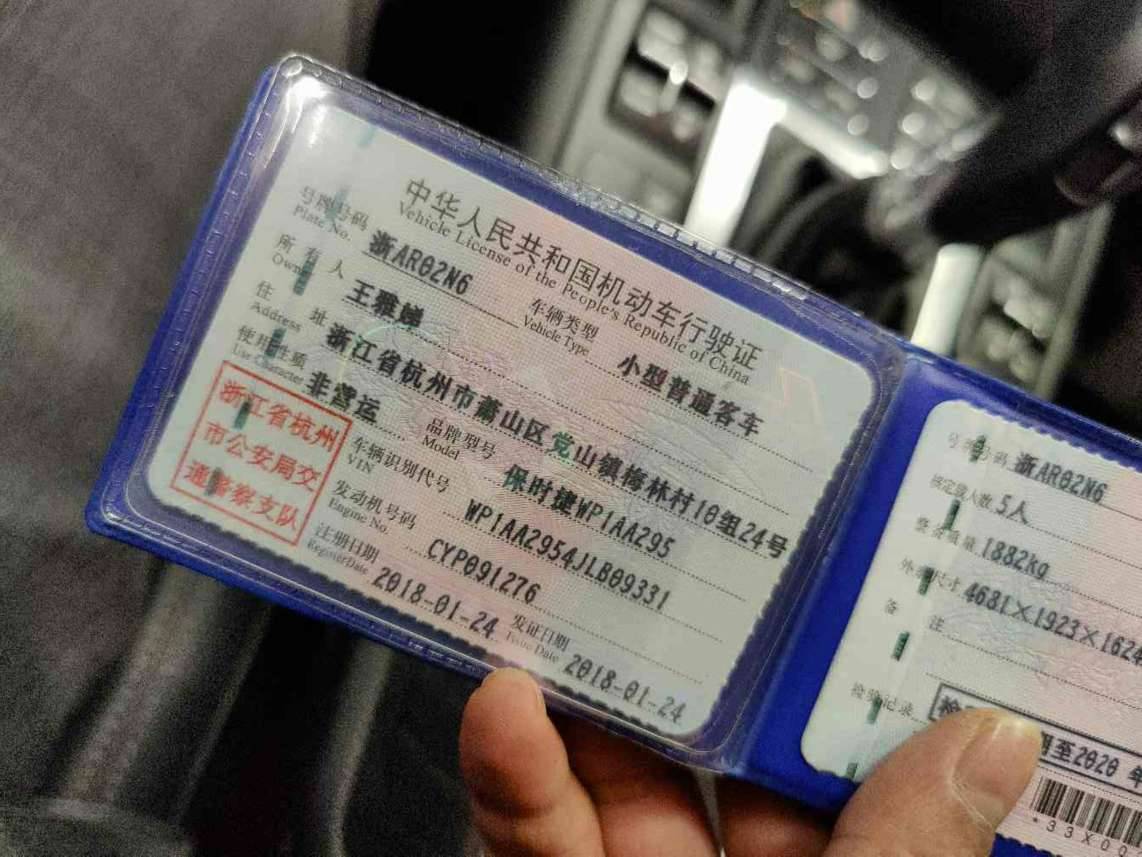 中华人民共和国机动车行驶证
Vehicle License of the People's Republic of China
号牌号码 浙AR02N6 车辆类型 小型普通客车
Plate No. Vehicle Type
所有人 王雅婵
Owner
住址 浙江省杭州市萧山区党山镇梅林村10组24号
Address
使用性质 非营运 品牌型号 保时捷WP1AA295
Use Character Model
浙江省杭州
市公安局交
通警察支队
车辆识别代号 WP1AA2954JLB09331
VIN
发动机号码 CYP091276
Engine No.
注册日期 2018-01-24 发证日期 2018-01-24
Register Date Issue Date
号牌号码 浙AR02N6
核定载人数 5人
整备质量 1882kg
外廓尺寸 4681×1923×1624
备注
检验记录 检 期至2020 年
*33X00